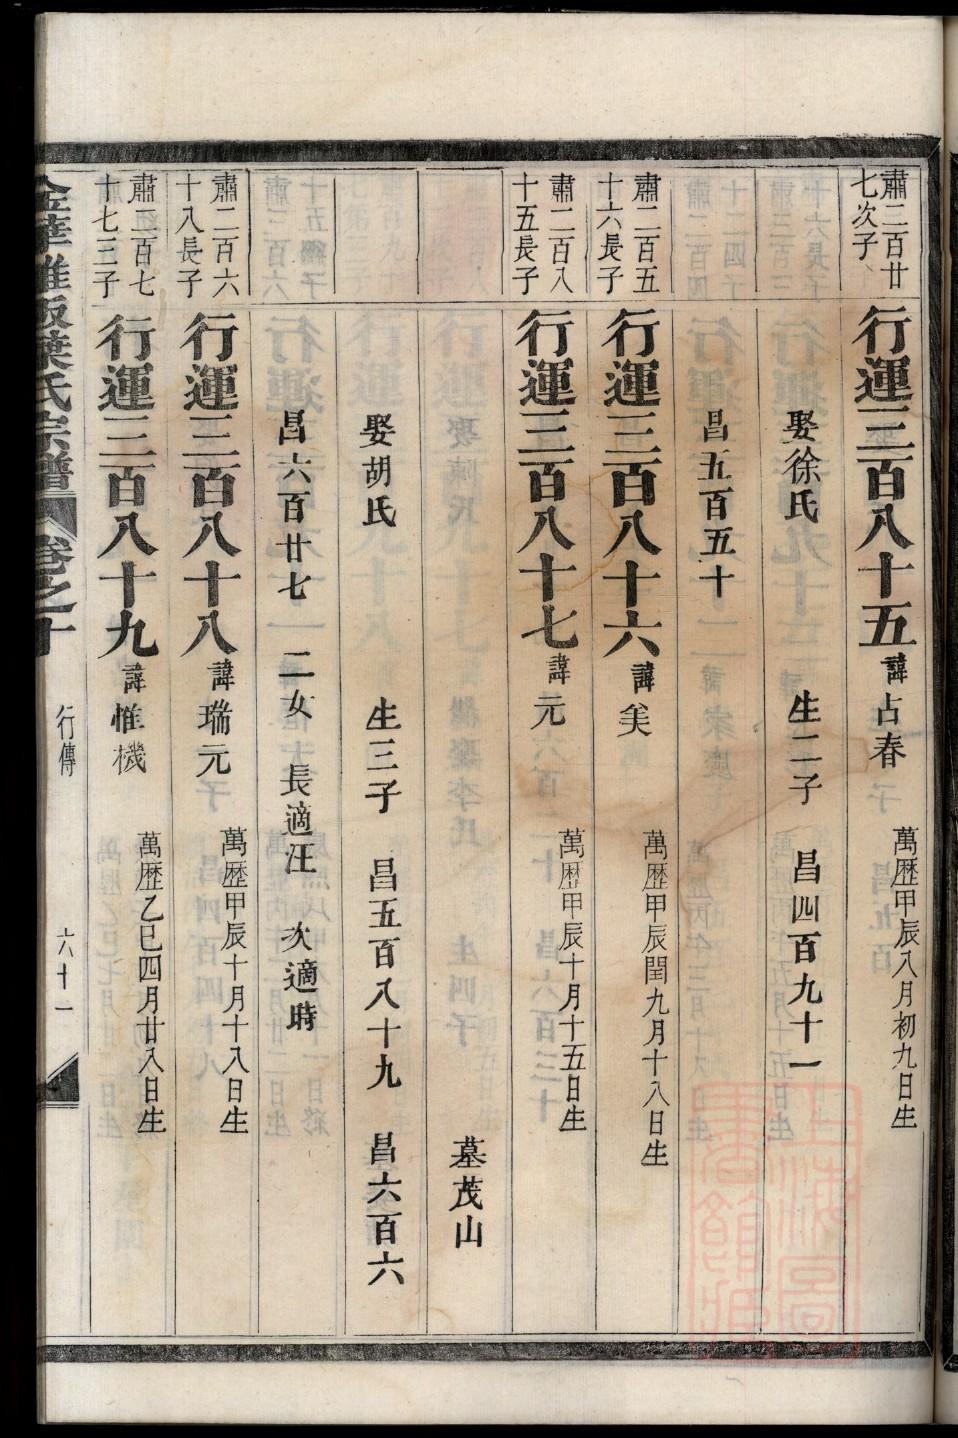 肅二百廿
七次子
行運三百八十五 諱占春 萬歷甲辰八月初九日生
娶徐氏 生二子 昌四百九十一
昌五百五十
肅二百五
十六長子
行運三百八十六 諱美 萬歷甲辰閏九月十八日生
肅二百八
十五長子
行運三百八十七 諱元 萬歷甲辰十月十五日生
墓茂山
娶胡氏 生三子 昌五百八十九 昌六百六
昌六百廿七 二女 長適汪 次適時
肅二百六
十八長子
行運三百八十八 諱瑞元 萬歷甲辰十月十八日生
肅二百七
十七三子
行運三百八十九 諱惟機 萬歷乙巳四月廿八日生
金華雅坂葉氏宗譜 卷之十 行傳 六十一